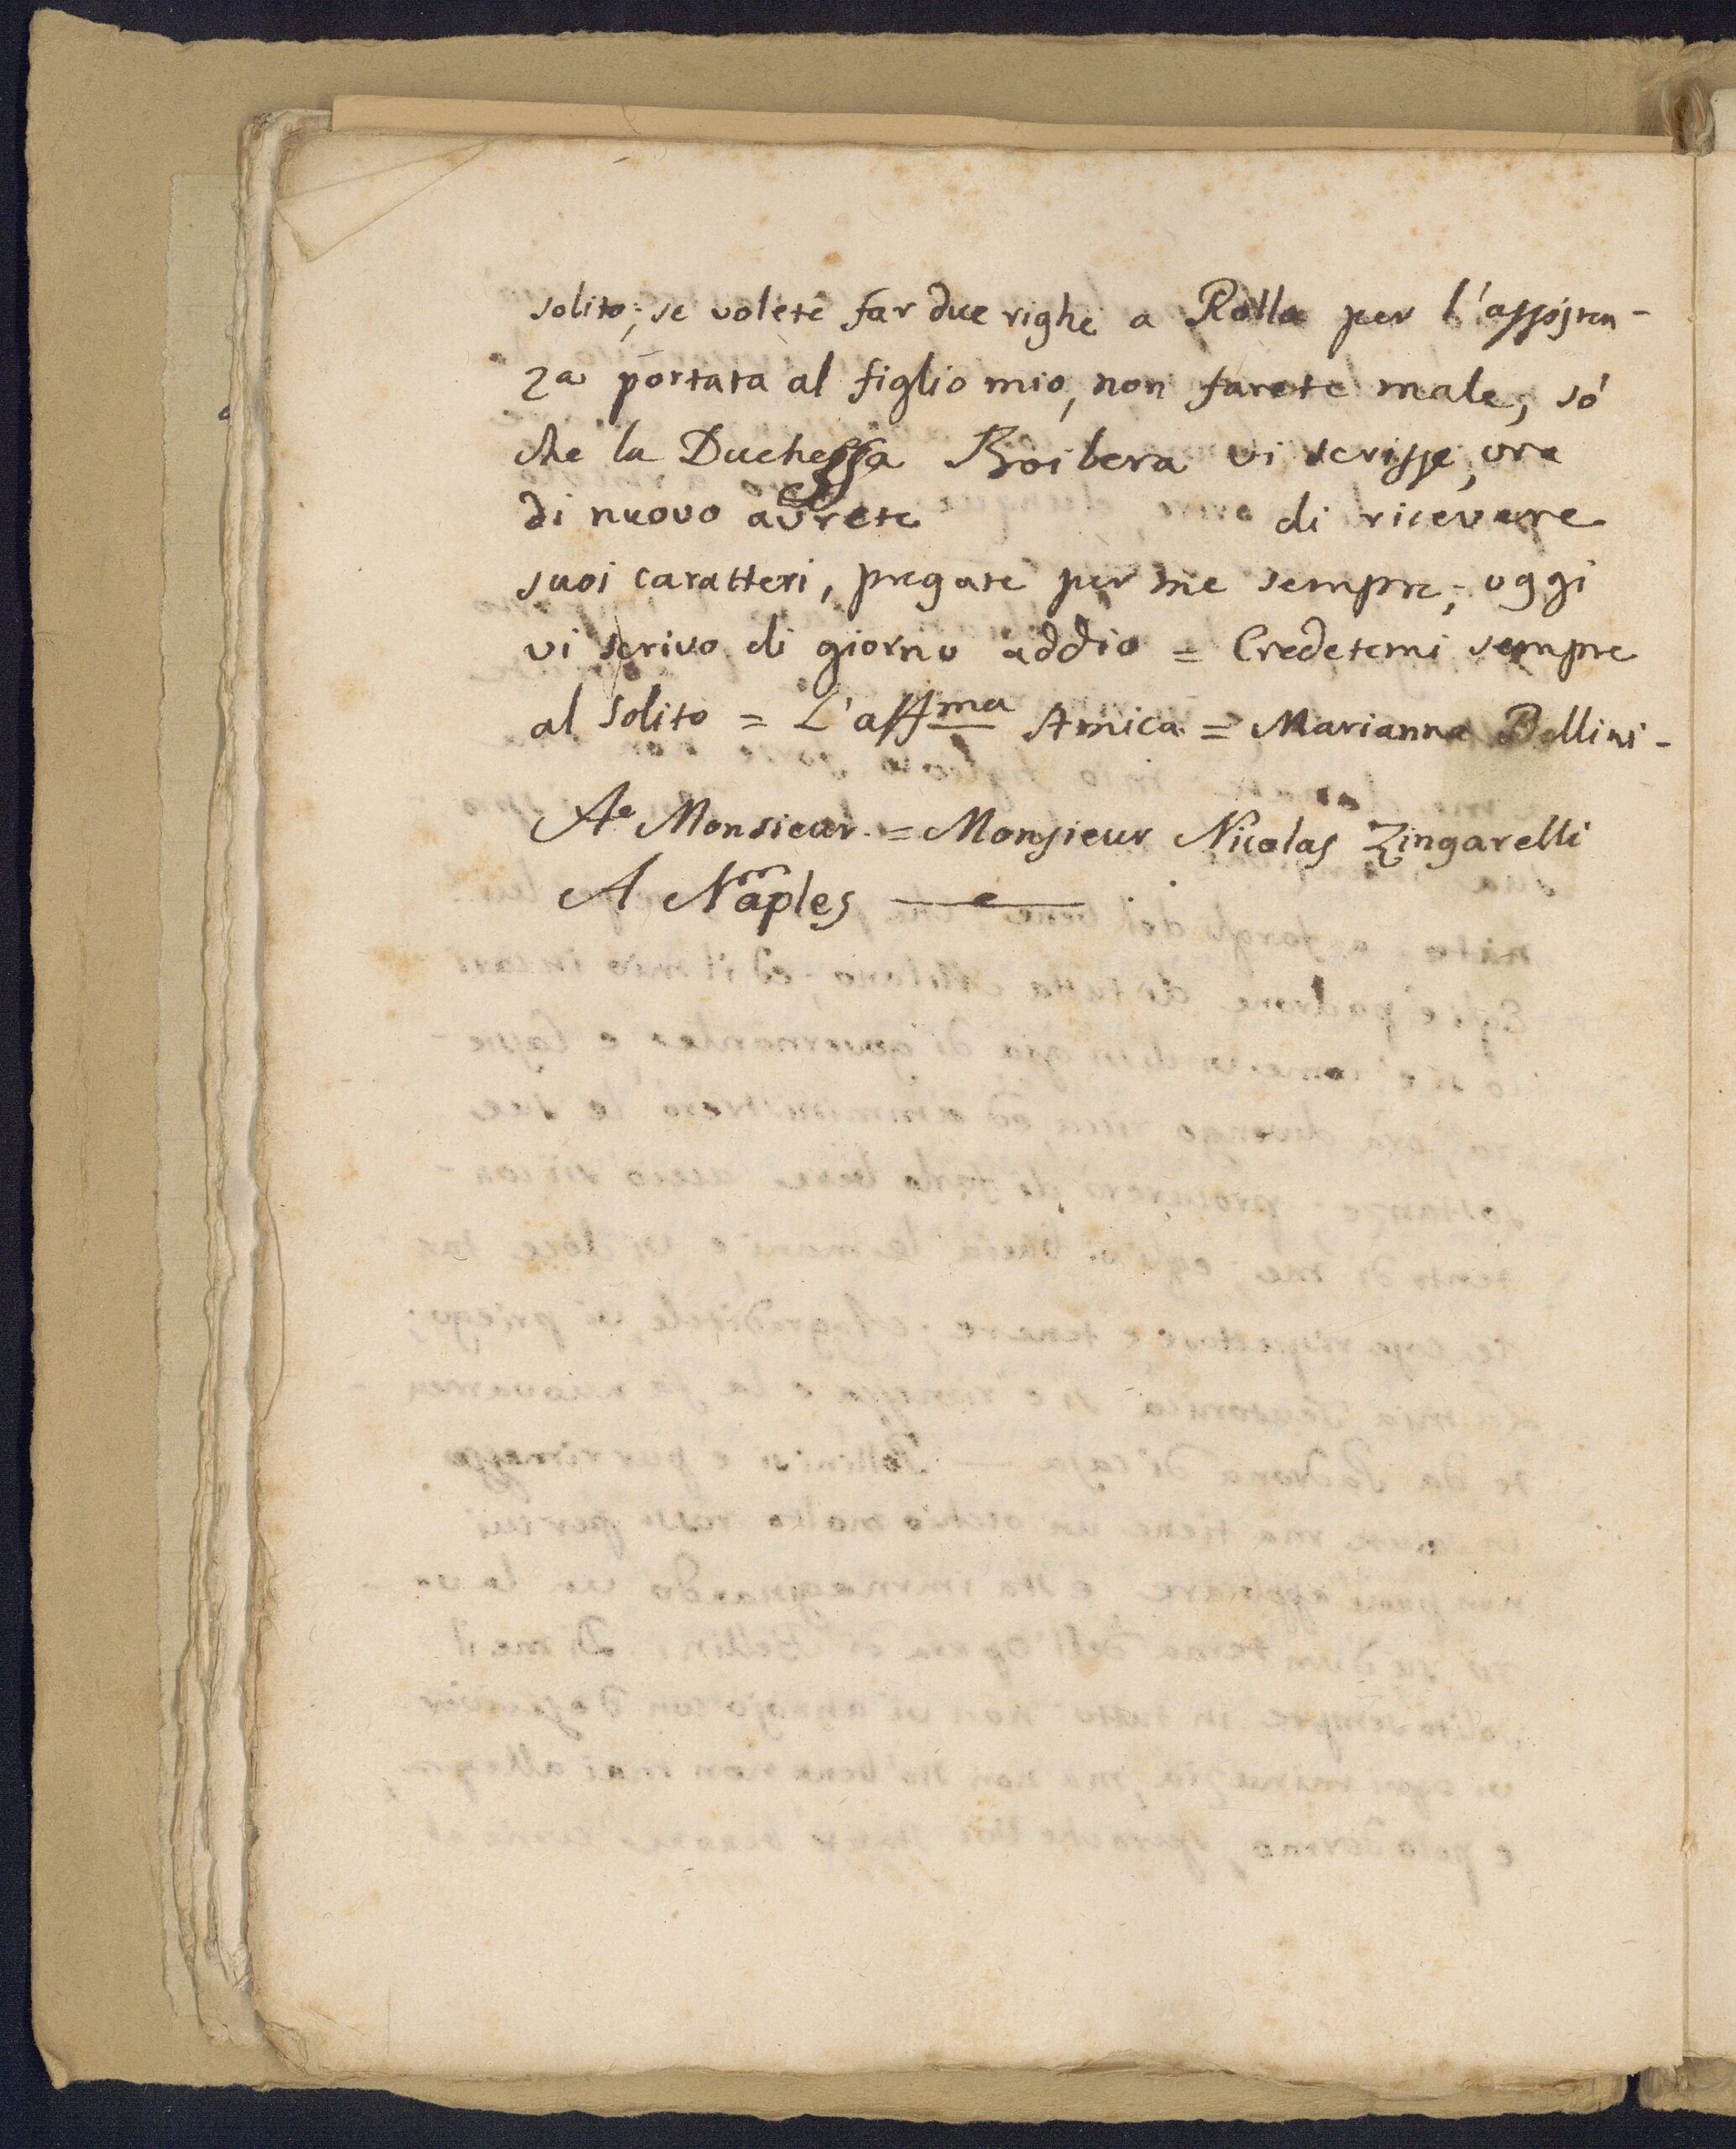 solito; se volete far due righe a Rolla per l'assisten-
za portata al figlio mio, non farete male, só
che la Duchessa Boibera vi scrisse, ora
di nuovo avrete di ricevere
suoi caratteri, pregate per me sempre; oggi
vi scrivo di giorno addio = Credetemi sempre
al solito = L'affma Amica = Marianna
A Monsieur = Monsieur Nicolas Zingarelli
A Naples